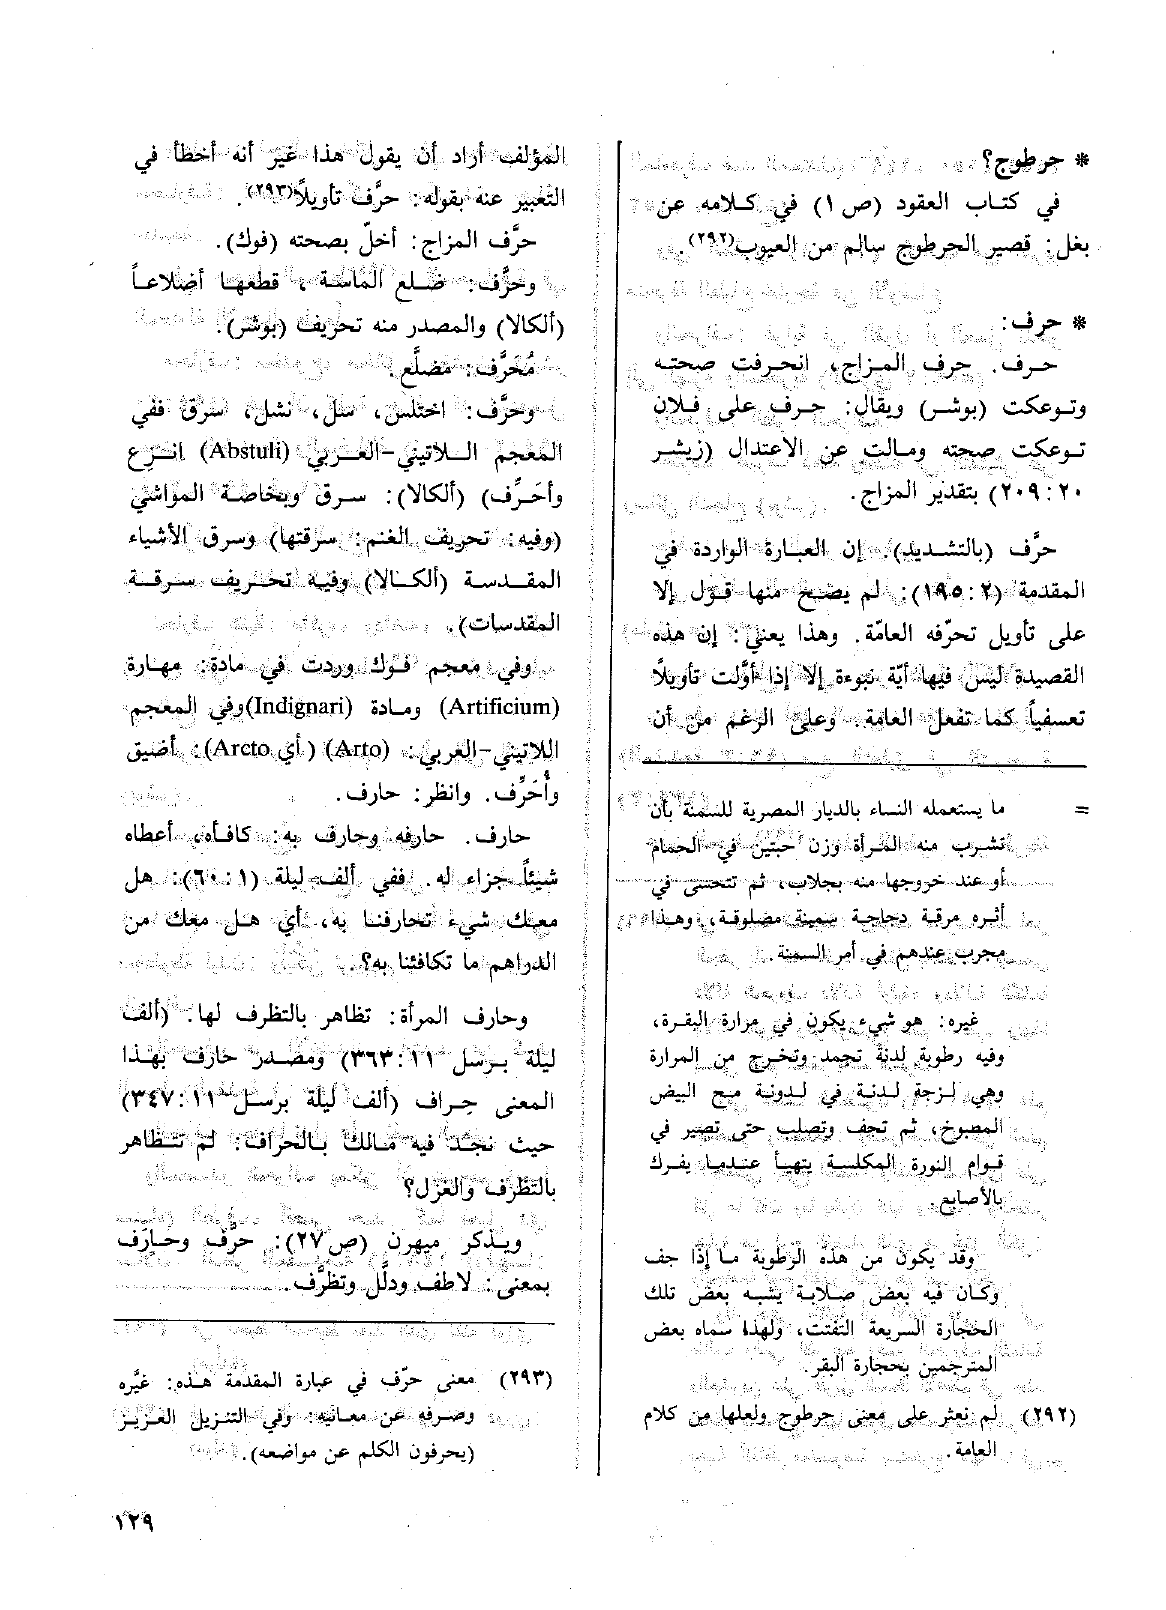 * حرطوج؟
في كتاب العقود (ص ١) في كلامه عن
بغل: قصير الحرطوج سالم من العيوب(٢٩٢).
* حرف:
حرف. حرف المزاج، انحرفت صحته
وتوعكت (بوشر) ويقال: حرف على فلان
توعكت صحته ومالت عن الاعتدال (زيشر
٢٠: ٢٠٩) بتقدير المزاج.
حرَّف (بالتشديد). إن العبارة الواردة في
المقدمة (٢: ١٩٥): لم يصح منها قول إلا
على تأويل تحرّفه العامّة. وهذا يعني: إن هذه
القصيدة ليس فيها أيّة نبوءة إلا إذا أوّلت تأويلاً
تعسفياً كما تفعل العامة. وعلى الرغم من أن
= ما يستعمله النساء بالديار المصرية للسمنة بأن
تشرب منه المرأة وزن حبتين في الحمام
أو عند خروجها منه بجلاب، ثم تتحسى في
أثره مرقة دجاجة سمينة مصلوقة، وهذا
مجرب عندهم في أمر السمنة.
غيره: هو شيء يكون في مرارة البقرة،
وفيه رطوبة لدنة تجمد وتخرج من المرارة
وهي لزجة لدنة في لدونة مح البيض
المطبوخ، ثم تجف وتصلب حتى تصير في
قوام النورة المكلسة يتهيأ عندما يفرك
بالأصابع.
وقد يكون من هذه الرطوبة ما إذا جف
وكان فيه بعض صلابة يشبه بعض تلك
الحجارة السريعة التفتت، ولهذا سماه بعض
المترجمين بحجارة البقر.
(٢٩٢) لم نعثر على معنى حرطوج ولعلها من كلام
العامة.
المؤلف أراد أن يقول هذا غير أنه أخطأ في
التعبير عنه بقوله: حرَّف تأويلاً(٢٩٣).
حرَّف المزاج: أخلّ بصحته (فوك).
وحرَّف: ضلع الماسة، قطعها أضلاعاً
(ألكالا) والمصدر منه تحريف (بوشر).
مُحَرَّف: مضلَّع.
وحرَّف: اختلس، سل، نشل، سرق ففي
المعجم اللاتيني-العربي (Abstuli) انتزع
وأحَرِّف) (ألكالا): سرق وبخاصة المواشي
(وفيه: تحريف الغنم: سرقتها) وسرق الأشياء
المقدسة (ألكالا) وفيه تحريف سرقة
المقدسات).
وفي معجم فوك وردت في مادة: مهارة
(Artificium) ومادة (Indignari)وفي المعجم
اللاتيني-العربي: (Arto) (أي Arcto): أضيق
وأُحَرِّف. وانظر: حارف.
حارف. حارفه وحارف به: كافأه، أعطاه
شيئاً جزاء له. ففي ألف ليلة (١: ٦٠): هل
معك شيء تحارفنا به، أي هل معك من
الدراهم ما تكافئنا به؟.
وحارف المرأة: تظاهر بالتظرف لها. (ألف
ليلة برسل ١١: ٣٦٣) ومصدر حارف بهذا
المعنى حراف (ألف ليلة برسل ١١: ٣٤٧)
حيث نجد فيه مالك بالحراف: لم تتظاهر
بالتظرف والغزل؟
ويذكر ميهرن (ص٢٧): حرَّف وحارَف
بمعنى: لاطف ودلَّل وتظرَّف.
(٢٩٣) معنى حرّف في عبارة المقدمة هذه: غيَّره
وصرفه عن معانيه: وفي التنزيل العزيز
(يحرفون الكلم عن مواضعه).
١٢٩